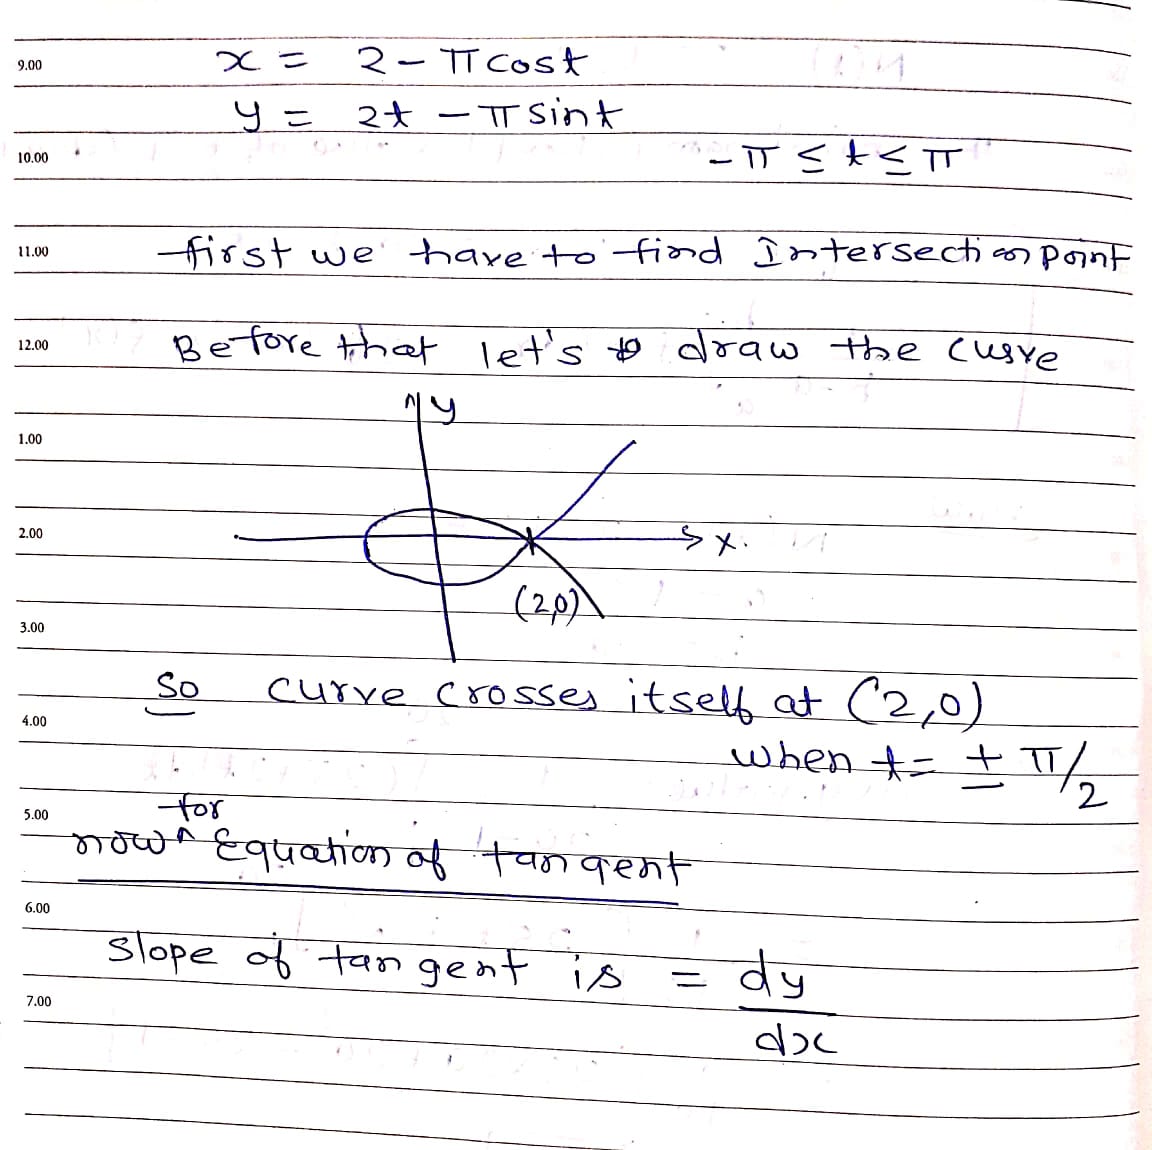 9.00 x = 2 - π cost
y = 2t - π sint
10.00 -π ≤ t ≤ π
11.00 first we have to find Intersection point
12.00 Before that let's draw the curve
y
1.00
2.00 x.
(2,0)
3.00
So curve crosses itself at (2,0)
4.00
when t = ± π/2
5.00 for
now ^ Equation of tangent
6.00
Slope of tangent is = dy
7.00
dx